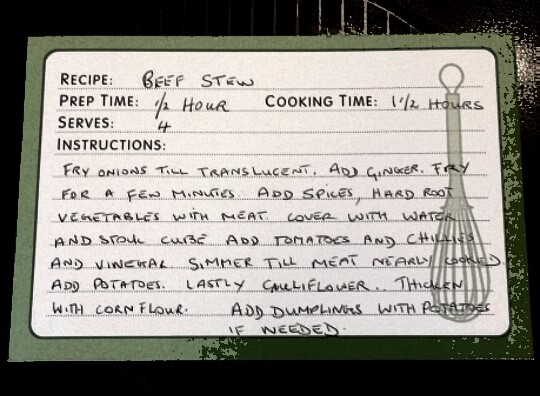 RECIPE: BEEF STEW
PREP TIME: 1/2 HOUR COOKING TIME: 1 1/2 HOURS
SERVES: 4
INSTRUCTIONS:
FRY ONIONS TILL TRANSLUCENT. ADD GINGER. FRY
FOR A FEW MINUTES. ADD SPICES, HARD ROOT
VEGETABLES WITH MEAT COVER WITH WATER
AND STOCK CUBE ADD TOMATOES AND CHILLIES
AND VINEGAR SIMMER TILL MEAT NEARLY COOKED
ADD POTATOES. LASTLY CAULIFLOWER.. THICKEN
WITH CORN FLOUR. ADD DUMPLINGS WITH POTATOES
IF NEEDED.